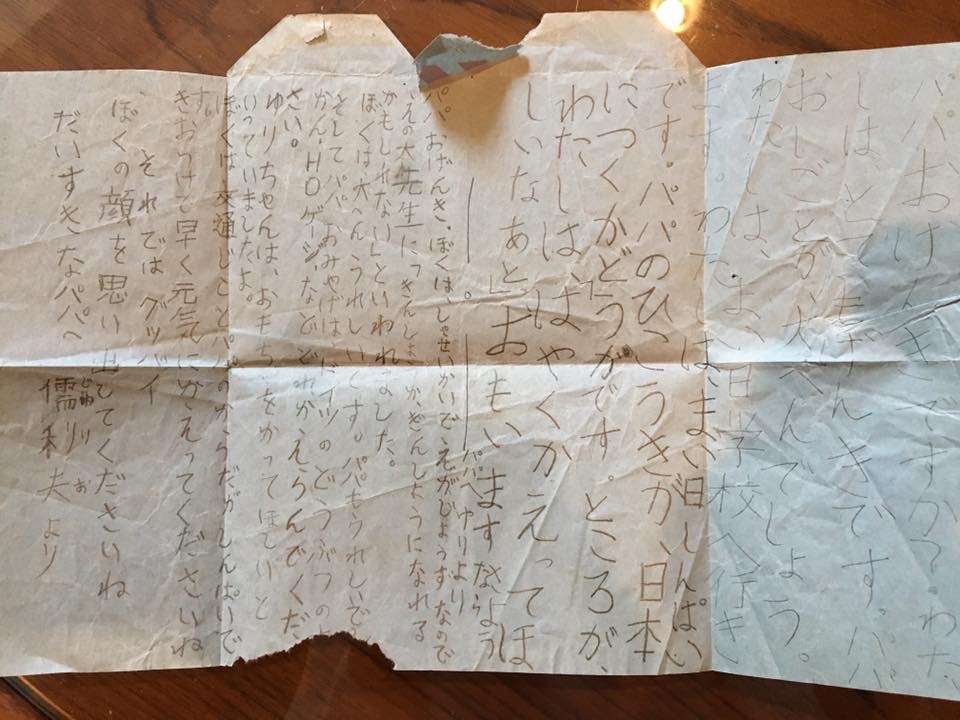 パパおげんきですか？わた
しは、とてもげんきです。パパ
おしごとが、大へんでしょう。
わたしは、まい日学校へ行き
ます。わたしは、まい日しんぱい
です。パパのひこうきが、日本
につくかどうかです。ところが、
わたしは、はやくかえってほ
しいなあとおもいますさようなら
パパへ ゆりより
パパ、おげんき。ぼくは、しゃせいかいでえがじょうずなので
えの大先生に きんしょうかぎんしょうになれる
かもしれない」といわれました。
ぼくは大へんうれしいです。パパもうれしいで
そしてパパ、おみやげは、ドイツのどうぶつの
かん、HOゲージ、などどれかえらんでくだ
さい。
ゆりちゃんは、おもちゃをかってほしいと
いっていましたよ。
ぼくは交通じことパパのからだがしんぱいで
す。
きおつけて早く元気にかえってくださいね
それではグッバイ
ぼくの顔を思い出してくださいね
だいすきなパパへ 儒利夫より
じゅりお